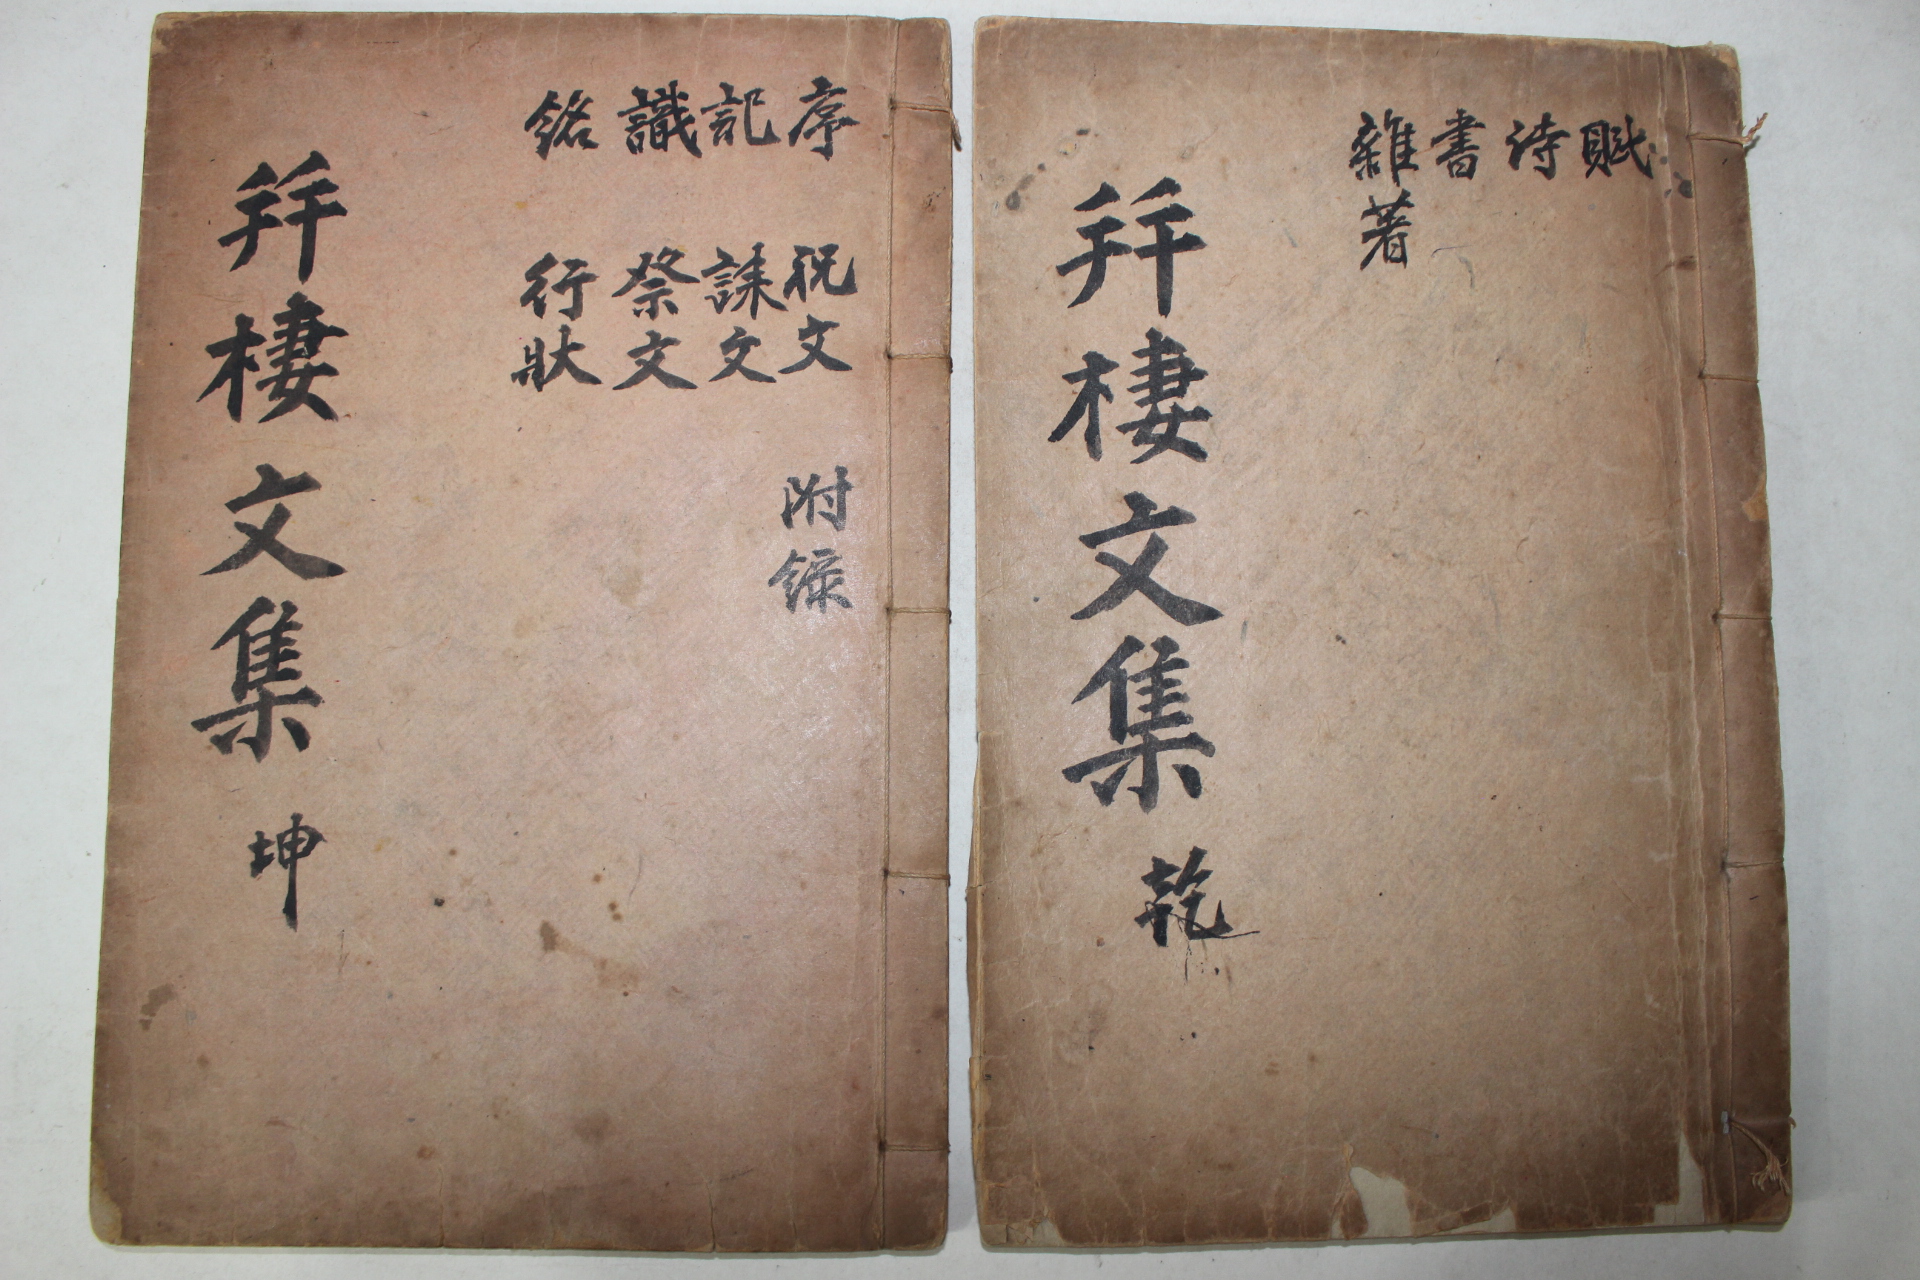 賦
詩
書
雜著
幷棲文集 乾
序 祝文 附錄
記 誄文
識 祭文
銘 行狀
幷棲文集 坤